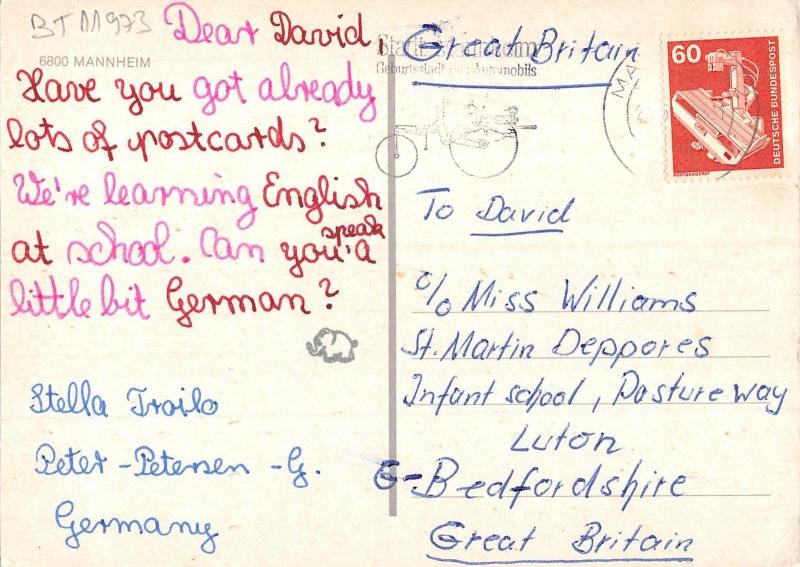 BTM973
6800 MANNHEIM
Dear David,
Have you got already
lots of postcards?
We're learning English
at school. Can you speak a
little bit German?
Stella Troilo
Peter-Petersen-G.
Germany
Great Britain
Stadt Mannheim
Geburtsstadt des Automobils
MA
60
DEUTSCHE BUNDESPOST
To David
c/o Miss Williams
St. Martin Deppores
Infant school, Pasture way
Luton
G-Bedfordshire
Great Britain